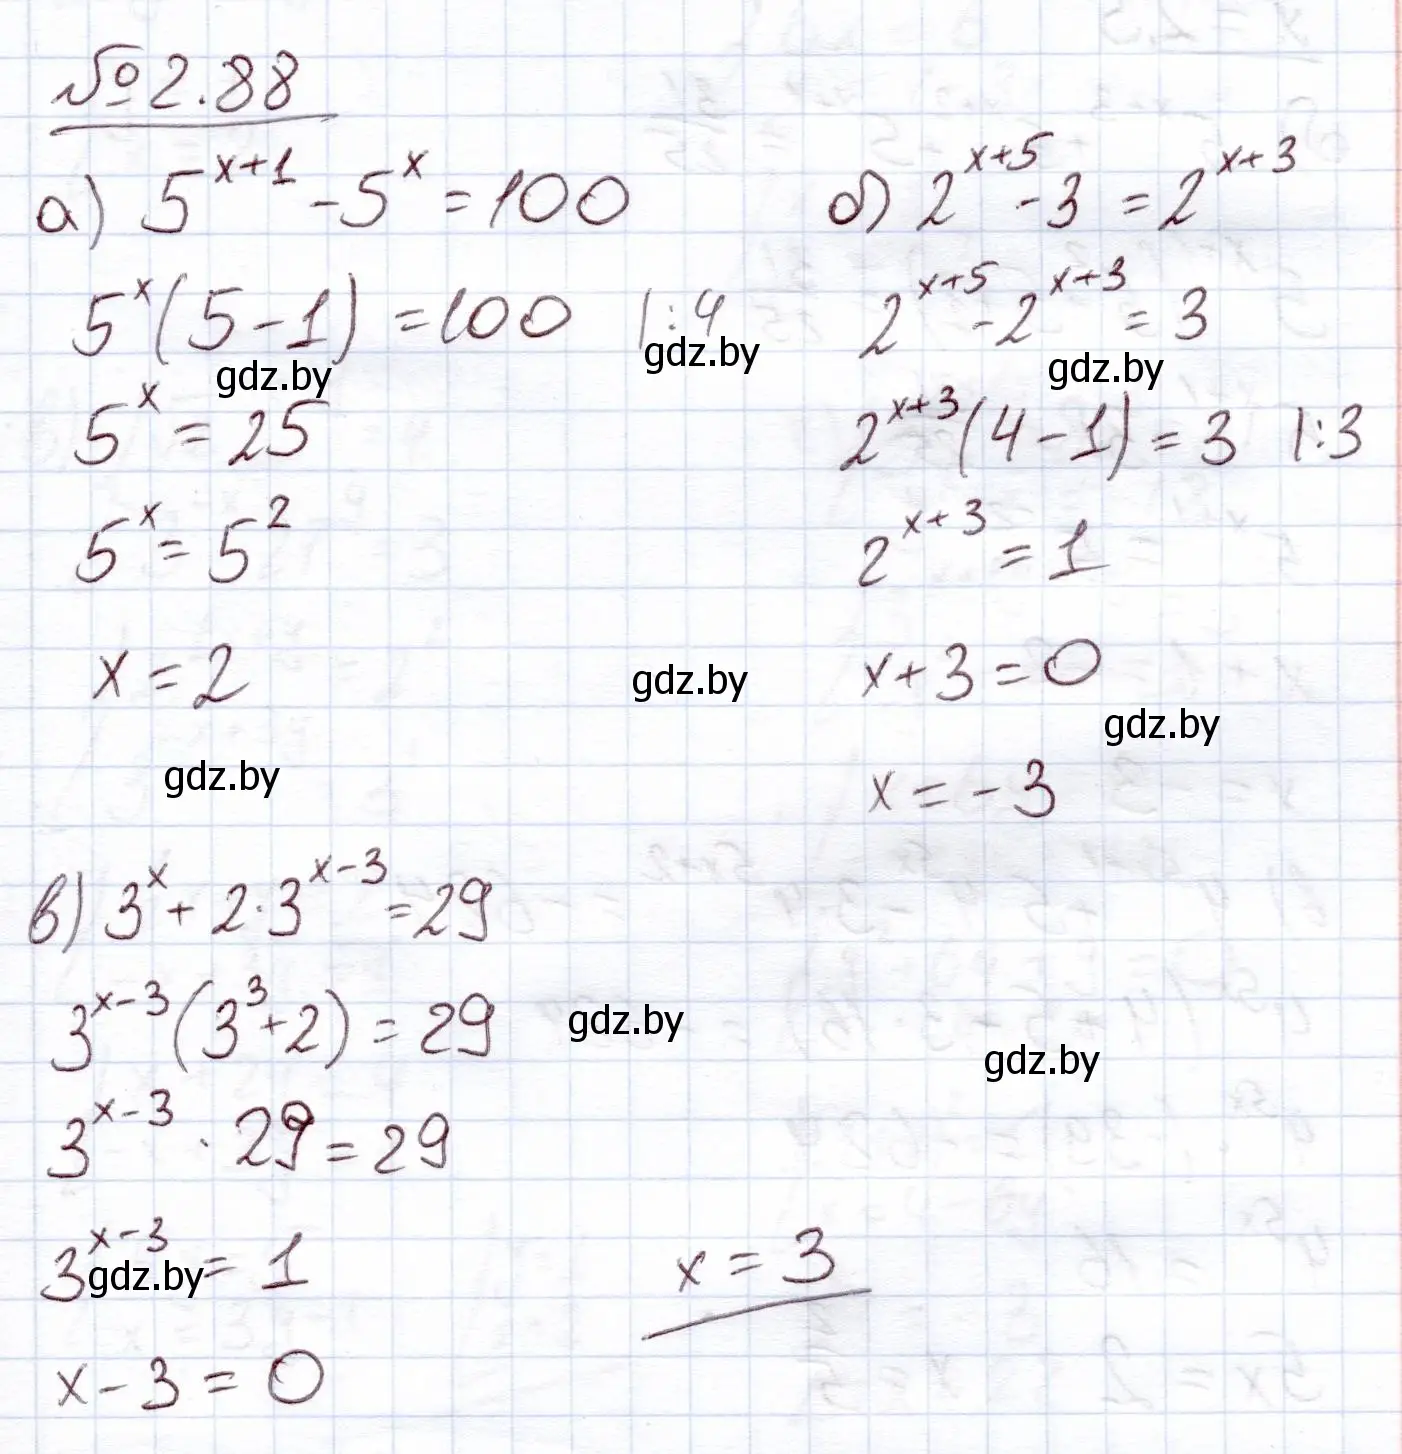 № 2.88
а) 5^{x+1} - 5^x = 100
5^x (5 - 1) = 100 |:4
5^x = 25
5^x = 5^2
x = 2
б) 2^{x+5} - 3 = 2^{x+3}
2^{x+5} - 2^{x+3} = 3
2^{x+3} (4 - 1) = 3 |:3
2^{x+3} = 1
x + 3 = 0
x = -3
в) 3^x + 2 · 3^{x-3} = 29
3^{x-3} (3^3 + 2) = 29
3^{x-3} · 29 = 29
3^{x-3} = 1
x - 3 = 0
x = 3
gdz.by
gdz.by
gdz.by
gdz.by
gdz.by
gdz.by
gdz.by
gdz.by
gdz.by